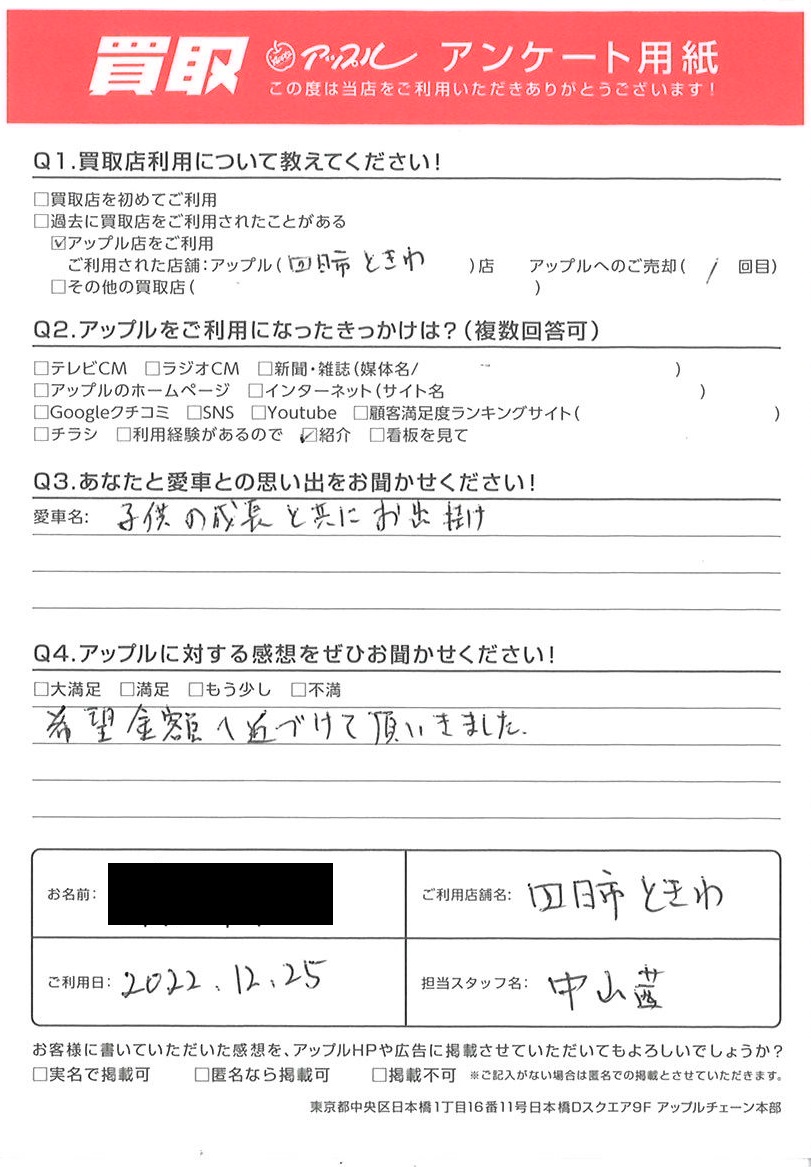 買取 アップル アンケート用紙
この度は当店をご利用いただきありがとうございます！
Q1.買取店利用について教えてください！
□買取店を初めてご利用
□過去に買取店をご利用されたことがある
☑アップル店をご利用
ご利用された店舗：アップル（四日市ときわ）店 アップルへのご売却（ 1 回目）
□その他の買取店（ ）
Q2.アップルをご利用になったきっかけは？（複数回答可）
□テレビCM □ラジオCM □新聞・雑誌（媒体名/ ）
□アップルのホームページ □インターネット（サイト名 ）
□Googleクチコミ □SNS □Youtube □顧客満足度ランキングサイト（ ）
□チラシ □利用経験があるので ☑紹介 □看板を見て
Q3.あなたと愛車との思い出をお聞かせください！
愛車名： 子供の成長と共にお出掛け
Q4.アップルに対する感想をぜひお聞かせください！
□大満足 □満足 □もう少し □不満
希望金額へ近づけて頂いきました.
お名前： ご利用店舗名： 四日市ときわ
ご利用日： 2022.12.25 担当スタッフ名： 中山
お客様に書いていただいた感想を、アップルHPや広告に掲載させていただいてもよろしいでしょうか？
□実名で掲載可 □匿名なら掲載可 □掲載不可 ※ご記入がない場合は匿名での掲載とさせていただきます。
東京都中央区日本橋1丁目16番11号日本橋Dスクエア9F アップルチェーン本部